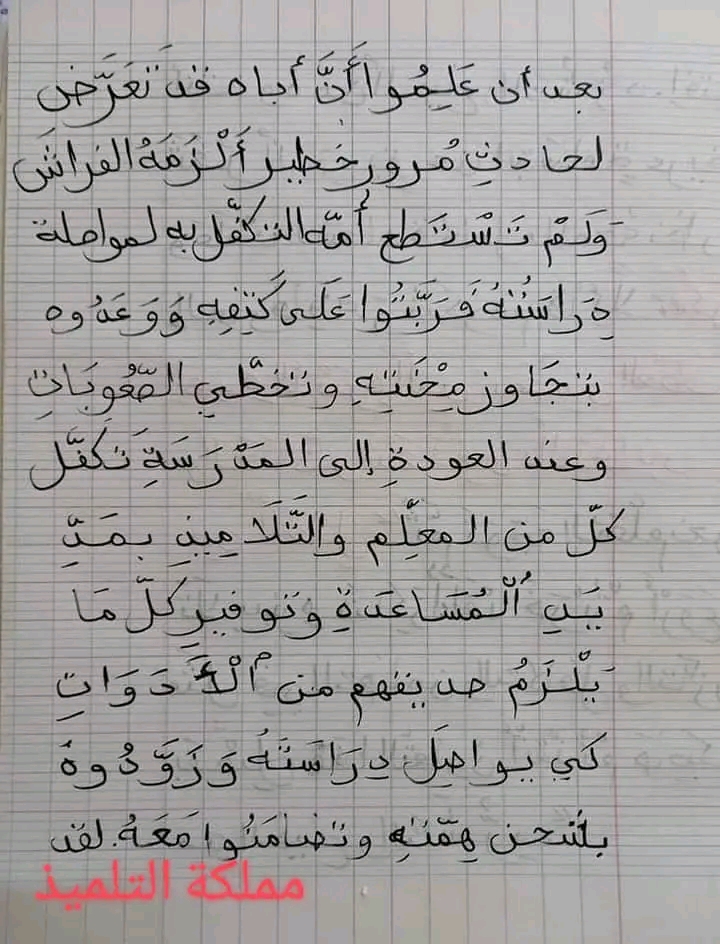 بعد أن عَلِمُوا أَنَّ أباه قد تَعَرَّض
لحادثِ مُرور خَطير أَلْزَمَهُ الفراشَ
وَلَمْ تَسْتَطع أُمّه التكفّل به لمواصلة
دِرَاسَتُهُ فَرَبَّتُوا عَلَى كَتِفِهِ وَوَعَدُوه
بتجَاوز مِحْنَتِهِ وتخطّي الصّعُوبَاتِ
وعند العودةِ إلى المَدْرَسَةِ تَكَفَّل
كلّ من المعلّم والتَّلَامِيذِ بمَدِّ
يَدِ ٱلْمُسَاعَدَةِ وتوفيرِ كلّ مَا
يَلْزَمُ صديقهم من ٱلْأَدَوَاتِ
كي يواصِلَ دِرَاسَتَهُ وَزَوَّدُوهُ
بشحن هِمّتهِ وتضامَنُوا مَعَهُ. لقد
مملكة التلميذ